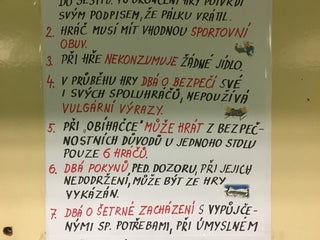 DO SEŠITU. PO UKONČENÍ HRY POTVRDÍ
SVÝM PODPISEM, ŽE PÁLKU VRÁTIL.
2. HRÁČ MUSÍ MÍT VHODNOU SPORTOVNÍ
OBUV.
3. PŘI HŘE NEKONZUMUJE ŽÁDNÉ JÍDLO.
4. V PRŮBĚHU HRY DBÁ O BEZPEČÍ SVÉ
I SVÝCH SPOLUHRÁČŮ, NEPOUŽÍVÁ
VULGÁRNÍ VÝRAZY.
5. PŘI „OBÍHAČCE" MŮŽE HRÁT Z BEZPEČ-
NOSTNÍCH DŮVODŮ U JEDNOHO STOLU
POUZE 6 HRÁČŮ.
6. DBÁ POKYNŮ PED. DOZORU, PŘI JEJICH
NEDODRŽENÍ, MŮŽE BÝT ZE HRY
VYKÁZÁN.
7. DBÁ O ŠETRNÉ ZACHÁZENÍ S VYPŮJČE-
NÝMI SP. POTŘEBAMI, PŘI ÚMYSLNÉM